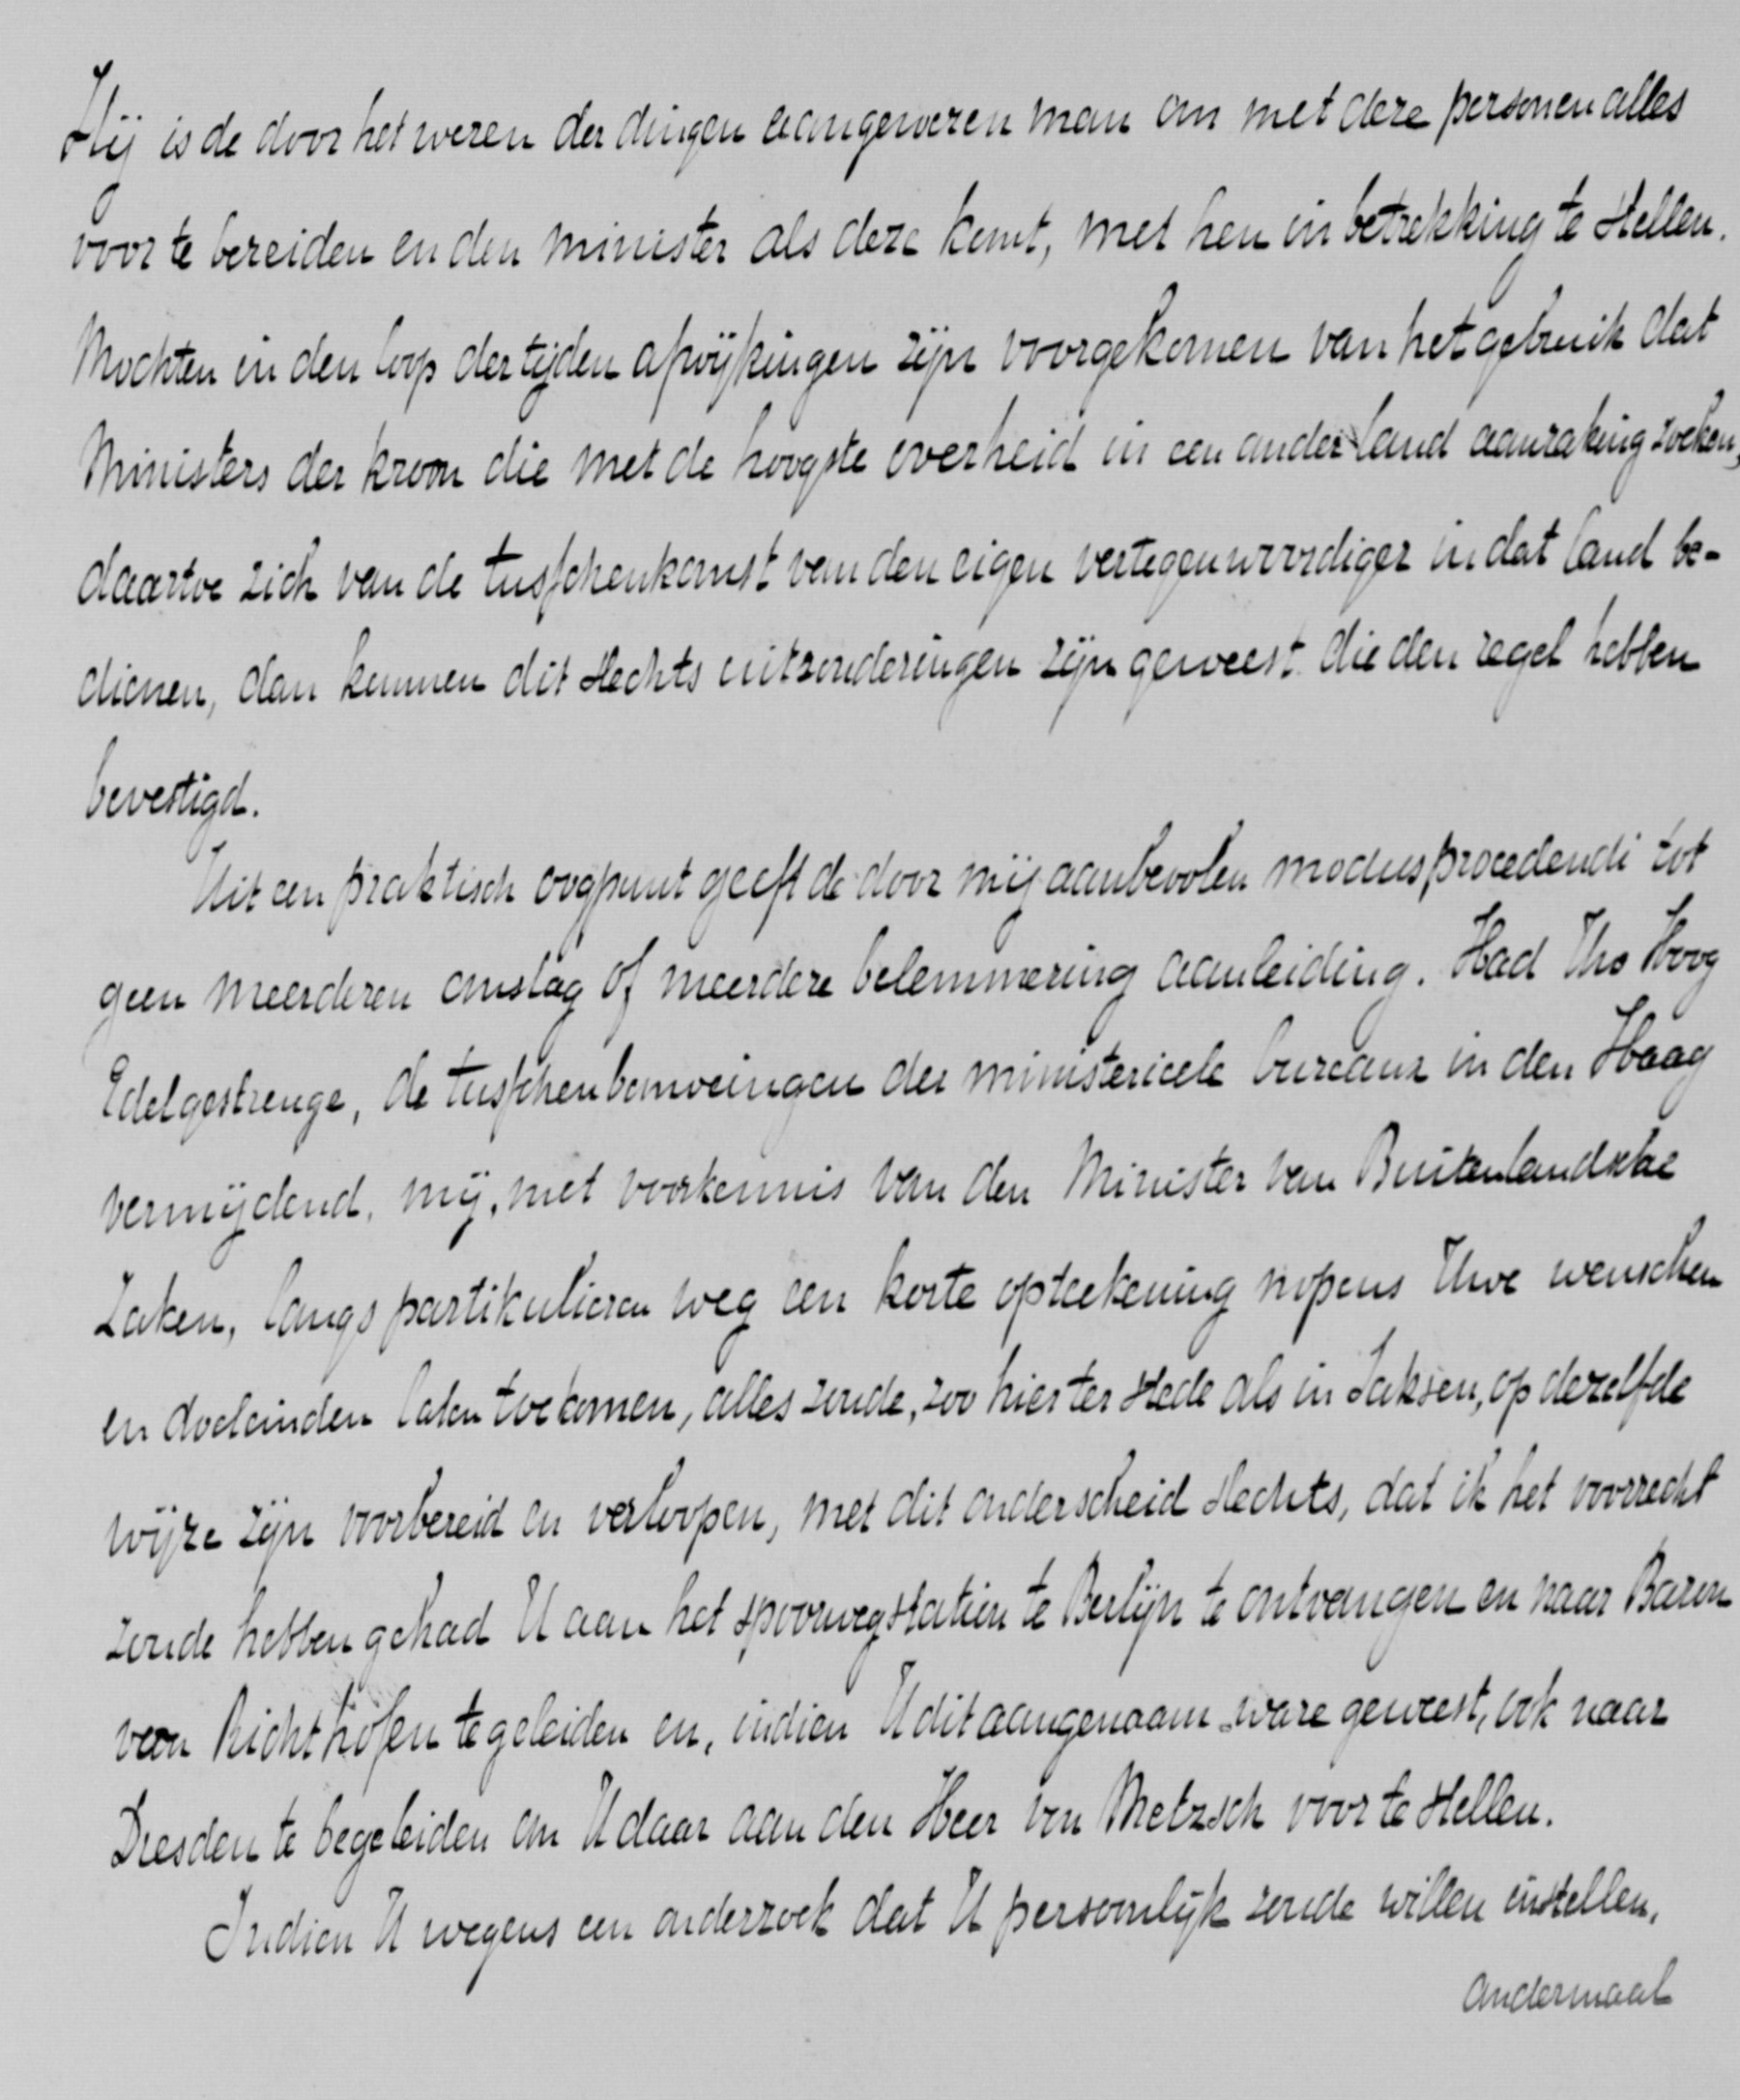 Hij is de door het wezen der dingen aangewezen man om met deze personen alles
voor te bereiden en den minister als deze komt, met hen in betrekking te stellen.
Mochten in den loop der tijden afwijkingen zijn voorgekomen van het gebruik dat
Ministers der kroon die met de hoogste overheid in een ander land aanraking zoeken,
daartoe zich van de tusschenkomst van den eigen vertegenwoordiger in dat land be-
dienen, dan kunnen dit slechts uitzonderingen zijn geweest die den regel hebben
bevestigd.
Uit een praktisch oogpunt geeft de door mij aanbevolen modus procedendi tot
geen meerderen omslag of meerdere belemmering aanleiding. Had Uho Hoog
Edelgestrenge, de tusschenbemoeingen der ministerieele bureaux in den Haag
vermijdend, mij, met voorkennis van den Minister van Buitenlandsche
Zaken, langs partikulieren weg een korte opteekening nopens Uwe wenschen
en doeleinden laten toekomen, alles zoude, zoo hier ter stede als in Saksen, op dezelfde
wijze zijn voorbereid en verloopen, met dit onderscheid slechts, dat ik het voorrecht
zoude hebben gehad U aan het spoorwegstation te Berlijn te ontvangen en naar Baron
von Richthofen te geleiden en, indien U dit aangenaam ware geweest, ook naar
Dresden te begeleiden om U daar aan den Heer von Metzsch voor te stellen.
Indien U wegens een onderzoek dat U persoonlijk zoude willen instellen,
andermaal